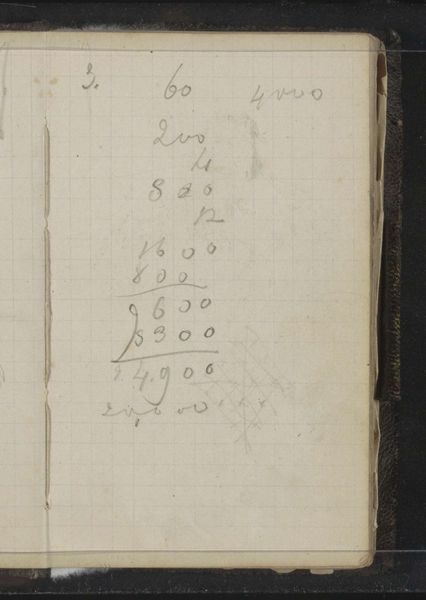 3. 60 4000
200
4
800
12
1600
800
9600
5300
14.900
20,000